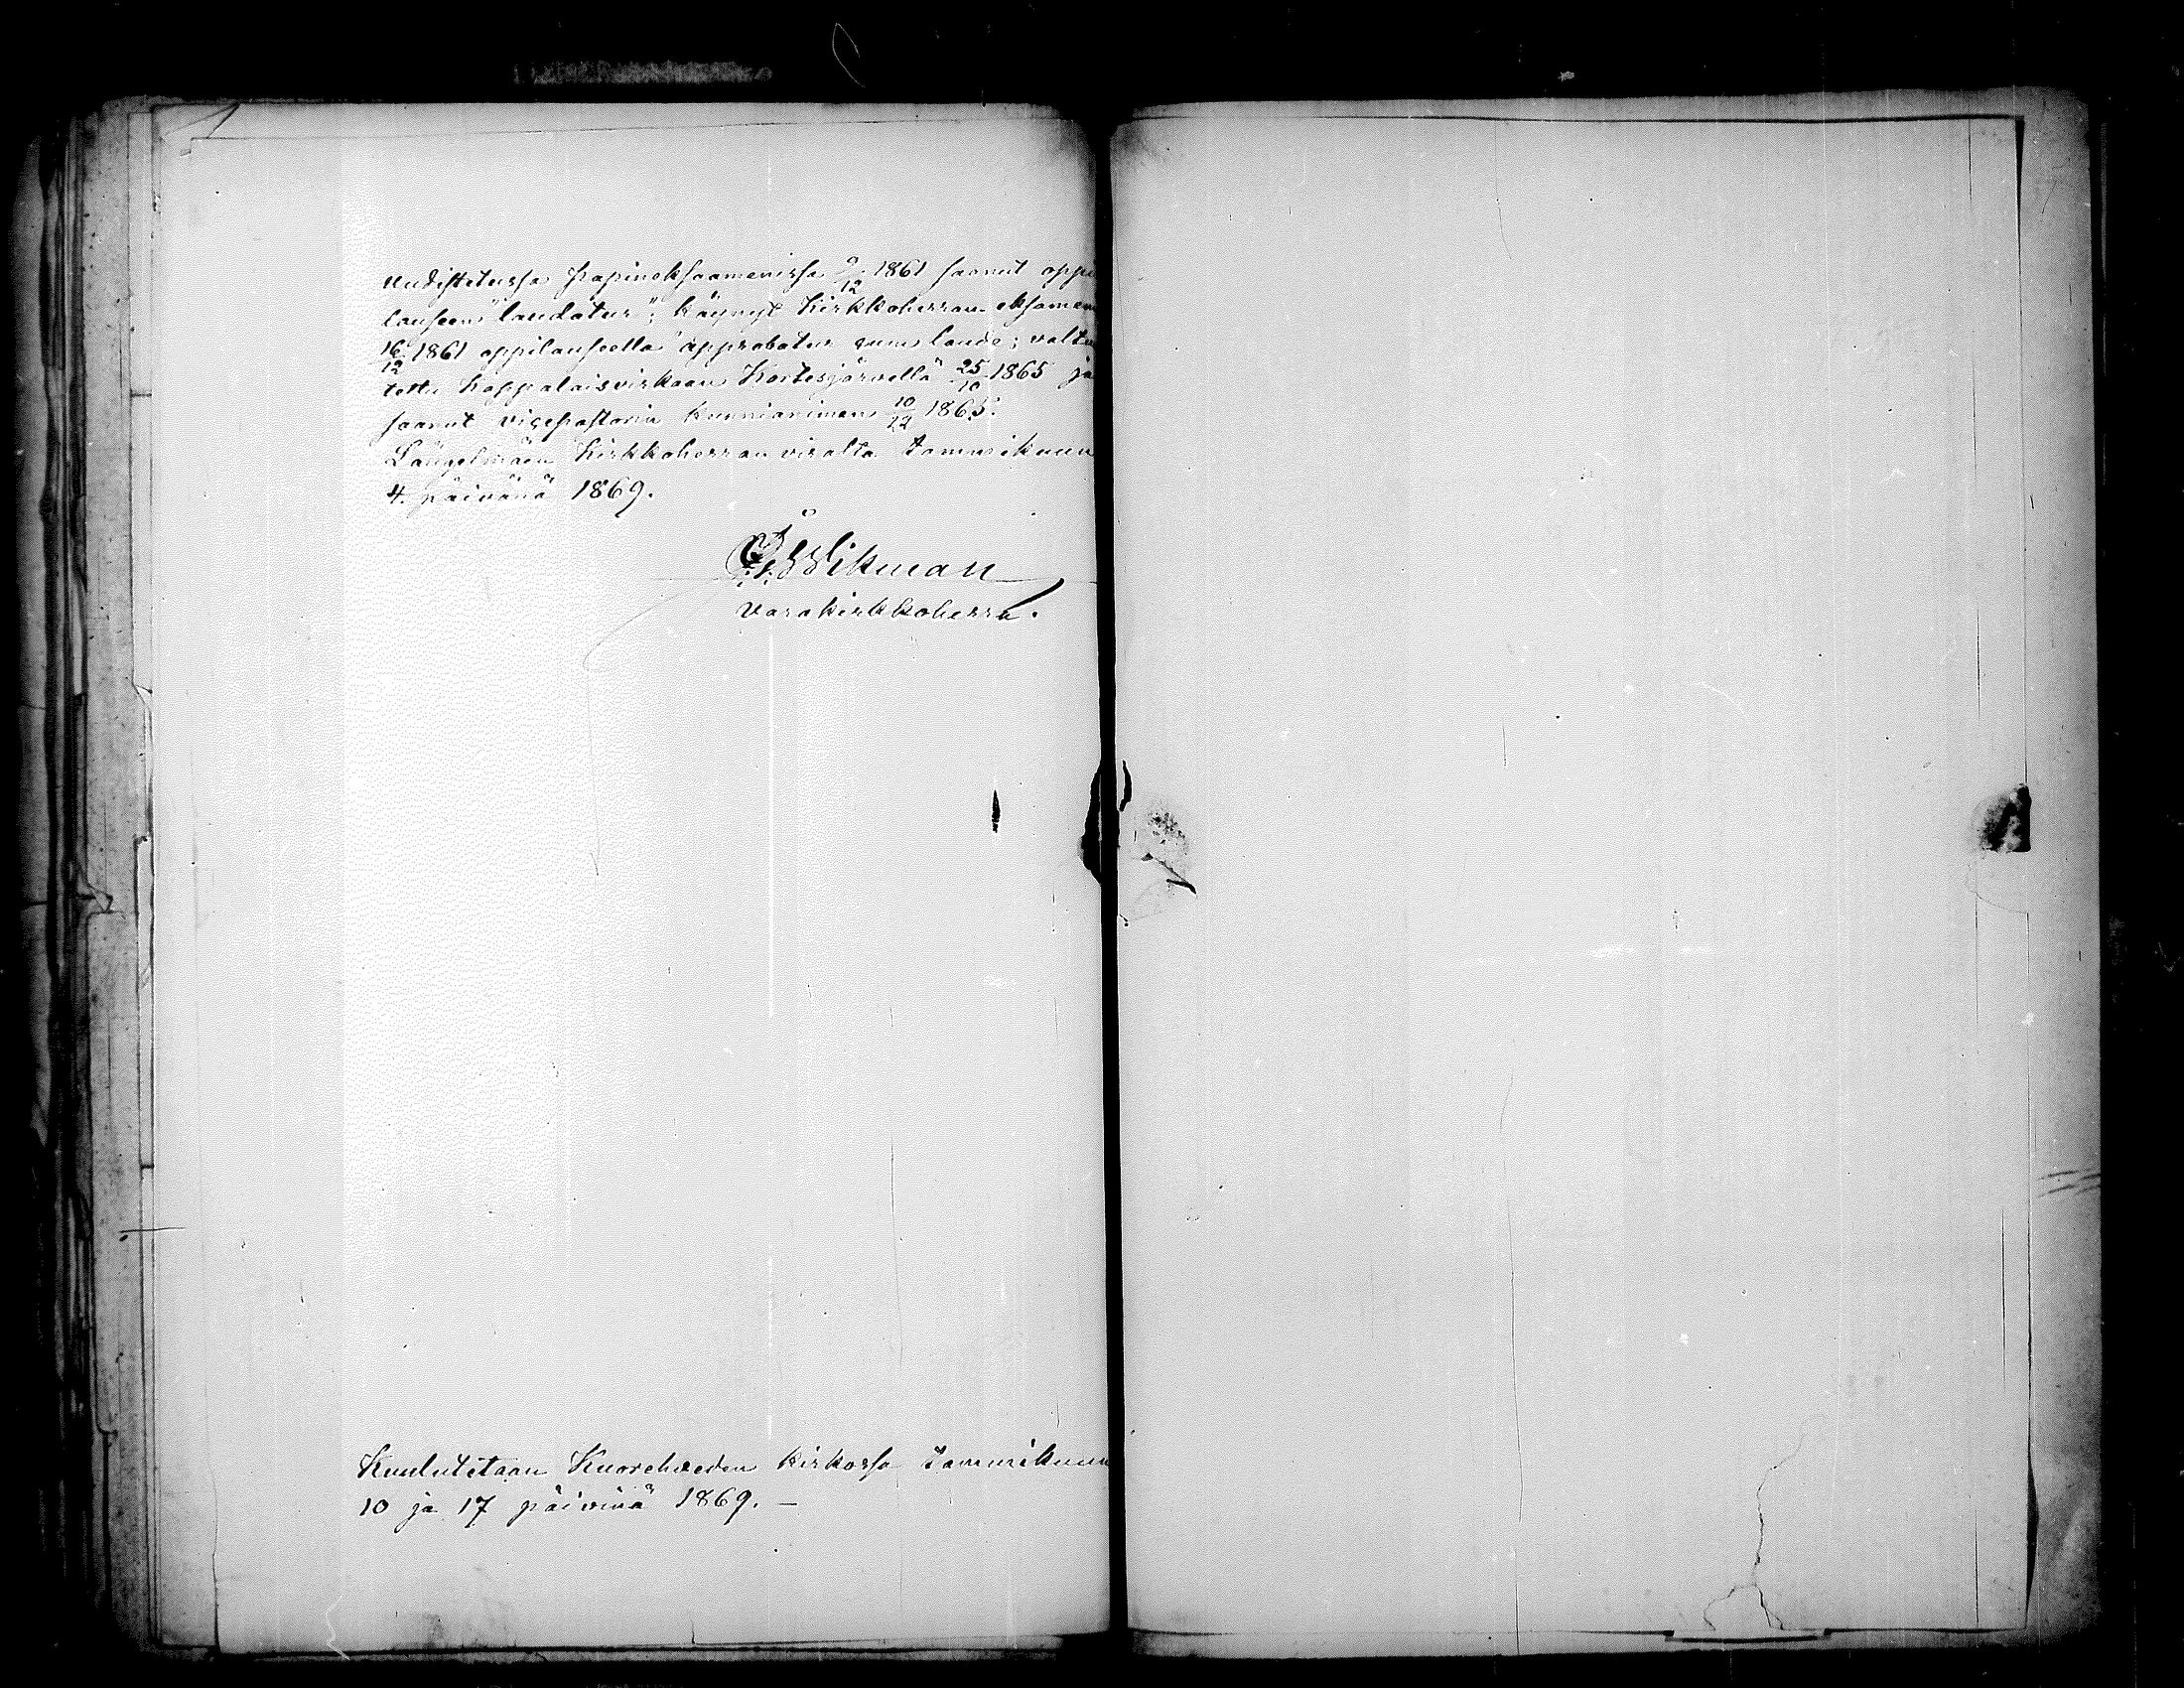 uudistetussa papineksaamenissa 9/12 1861 saanut oppi
lauseen "laudatur"; käynyt Kirkkoherran eksamen
16/12 1861 oppilauseella "approbatur cum laude; valtu
tettu Kappalaisvirkaan Kortesjärvellä 25/10 1865 ja
saanut vicepastorin kunnianimen 10/12 1865.
Längelmäen Kirkkoherran viralta Tammikuun
4. päivänä 1869.
Wikman
varakirkkoherra.
Kuulutetaan Kuorehveden kirkossa Tammikuun
10 ja 17 päivinä 1869. —